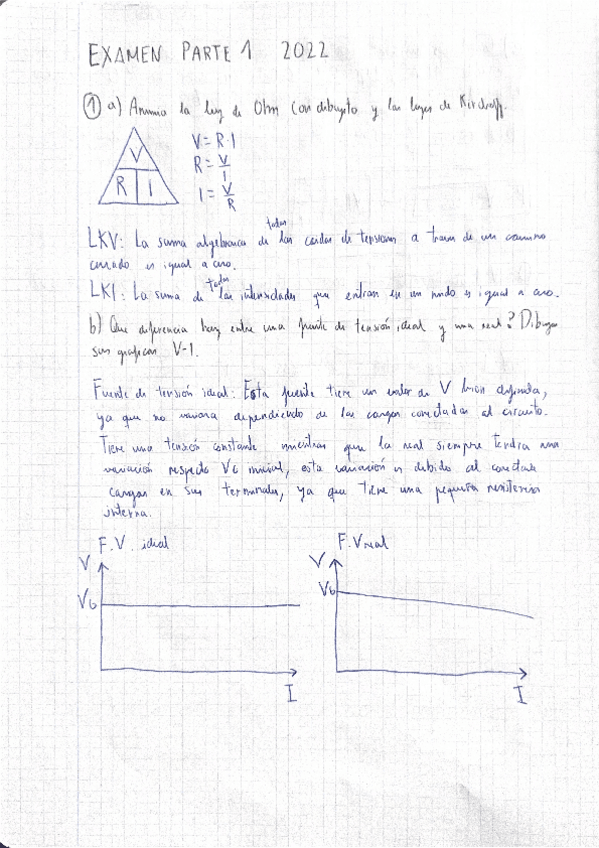 EXAMEN PARTE 1 2022
① a) Anuncia la ley de Ohm con dibujito y las leyes de Kirchoff.
V
R I
V = R·I
R = V/I
I = V/R
todas
LKV: La suma algebraica de las caidas de tensiones a traves de un camino
cerrado es igual a cero.
todas
LKI: La suma de las intensidades que entran en un nodo es igual a cero.
b) Que diferencia hay entre una fuente de tensión ideal y una real? Dibuja
sus graficas V-I.
Fuente de tensión ideal: Esta fuente tiene un valor de V bien definida,
ya que no variara dependiendo de las cargas conectadas al circuito.
Tiene una tensión constante mientras que la real siempre tendra una
variación respecto VG inicial, esta variación es debido al conectar
cargas en sus terminales, ya que tiene una pequeña resistencia
interna.
F.V. ideal
F.V real
V
VG
I
V
VG
I